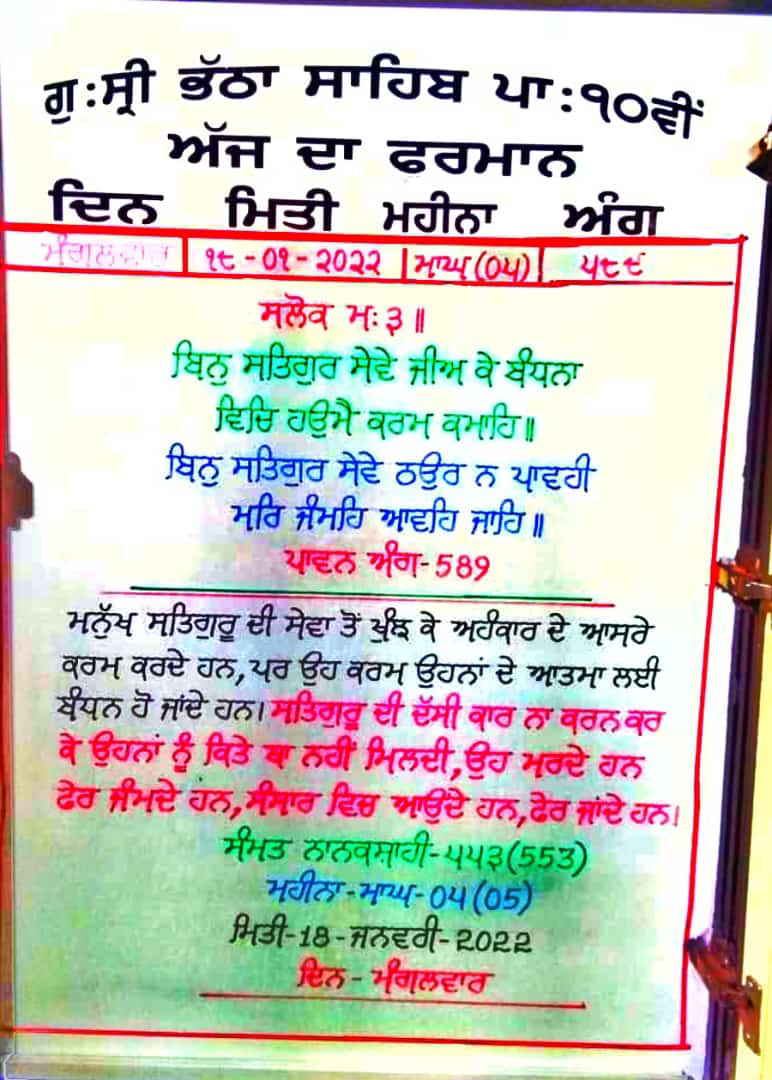 ਗੁ:ਸ੍ਰੀ ਭੱਠਾ ਸਾਹਿਬ ਪਾ:੧੦ਵੀਂ
ਅੱਜ ਦਾ ਫਰਮਾਨ
ਦਿਨ ਮਿਤੀ ਮਹੀਨਾ ਅੰਗ
ਮੰਗਲਵਾਰ ੧੮-੦੧-੨੦੨੨ ਮਾਘ(੦੫) ੫੮੯
ਸਲੋਕ ਮ:੩॥
ਬਿਨੁ ਸਤਿਗੁਰ ਸੇਵੇ ਜੀਅ ਕੇ ਬੰਧਨਾ
ਵਿਚਿ ਹਉਮੈ ਕਰਮ ਕਮਾਹਿ॥
ਬਿਨੁ ਸਤਿਗੁਰ ਸੇਵੇ ਠਉਰ ਨ ਪਾਵਹੀ
ਮਰਿ ਜੰਮਹਿ ਆਵਹਿ ਜਾਹਿ॥
ਪਾਵਨ ਅੰਗ-589
ਮਨੁੱਖ ਸਤਿਗੁਰੂ ਦੀ ਸੇਵਾ ਤੋਂ ਖੁੰਝ ਕੇ ਅਹੰਕਾਰ ਦੇ ਆਸਰੇ
ਕਰਮ ਕਰਦੇ ਹਨ,ਪਰ ਉਹ ਕਰਮ ਉਹਨਾਂ ਦੇ ਆਤਮਾ ਲਈ
ਬੰਧਨ ਹੋ ਜਾਂਦੇ ਹਨ। ਸਤਿਗੁਰੂ ਦੀ ਦੱਸੀ ਕਾਰ ਨਾ ਕਰਨ ਕਰ
ਕੇ ਉਹਨਾਂ ਨੂੰ ਕਿਤੇ ਥਾ ਨਹੀਂ ਮਿਲਦੀ,ਉਹ ਮਰਦੇ ਹਨ
ਫੇਰ ਜੰਮਦੇ ਹਨ,ਸੰਸਾਰ ਵਿਚ ਆਉਂਦੇ ਹਨ,ਫੇਰ ਜਾਂਦੇ ਹਨ।
ਸੰਮਤ ਨਾਨਕਸ਼ਾਹੀ-੫੫੩(553)
ਮਹੀਨਾ-ਮਾਘ-੦੫(05)
ਮਿਤੀ-18-ਜਨਵਰੀ-2022
ਦਿਨ-ਮੰਗਲਵਾਰ